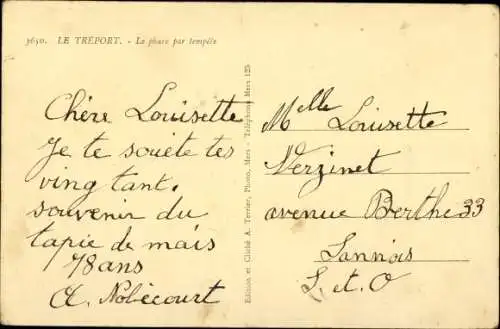 3650. LE TRÉPORT. - Le phare par tempête
Chère Louisette
Je te souète tes
vingtant.
souvenir du
tapie de mais
78 ans
A. Nobécourt
Edition et Cliché A. Terrier, Photo, Mers - Téléphone Mers 125
Melle Louisette
Verzinet
avenue Berthe 33
Sannois
S. et. O